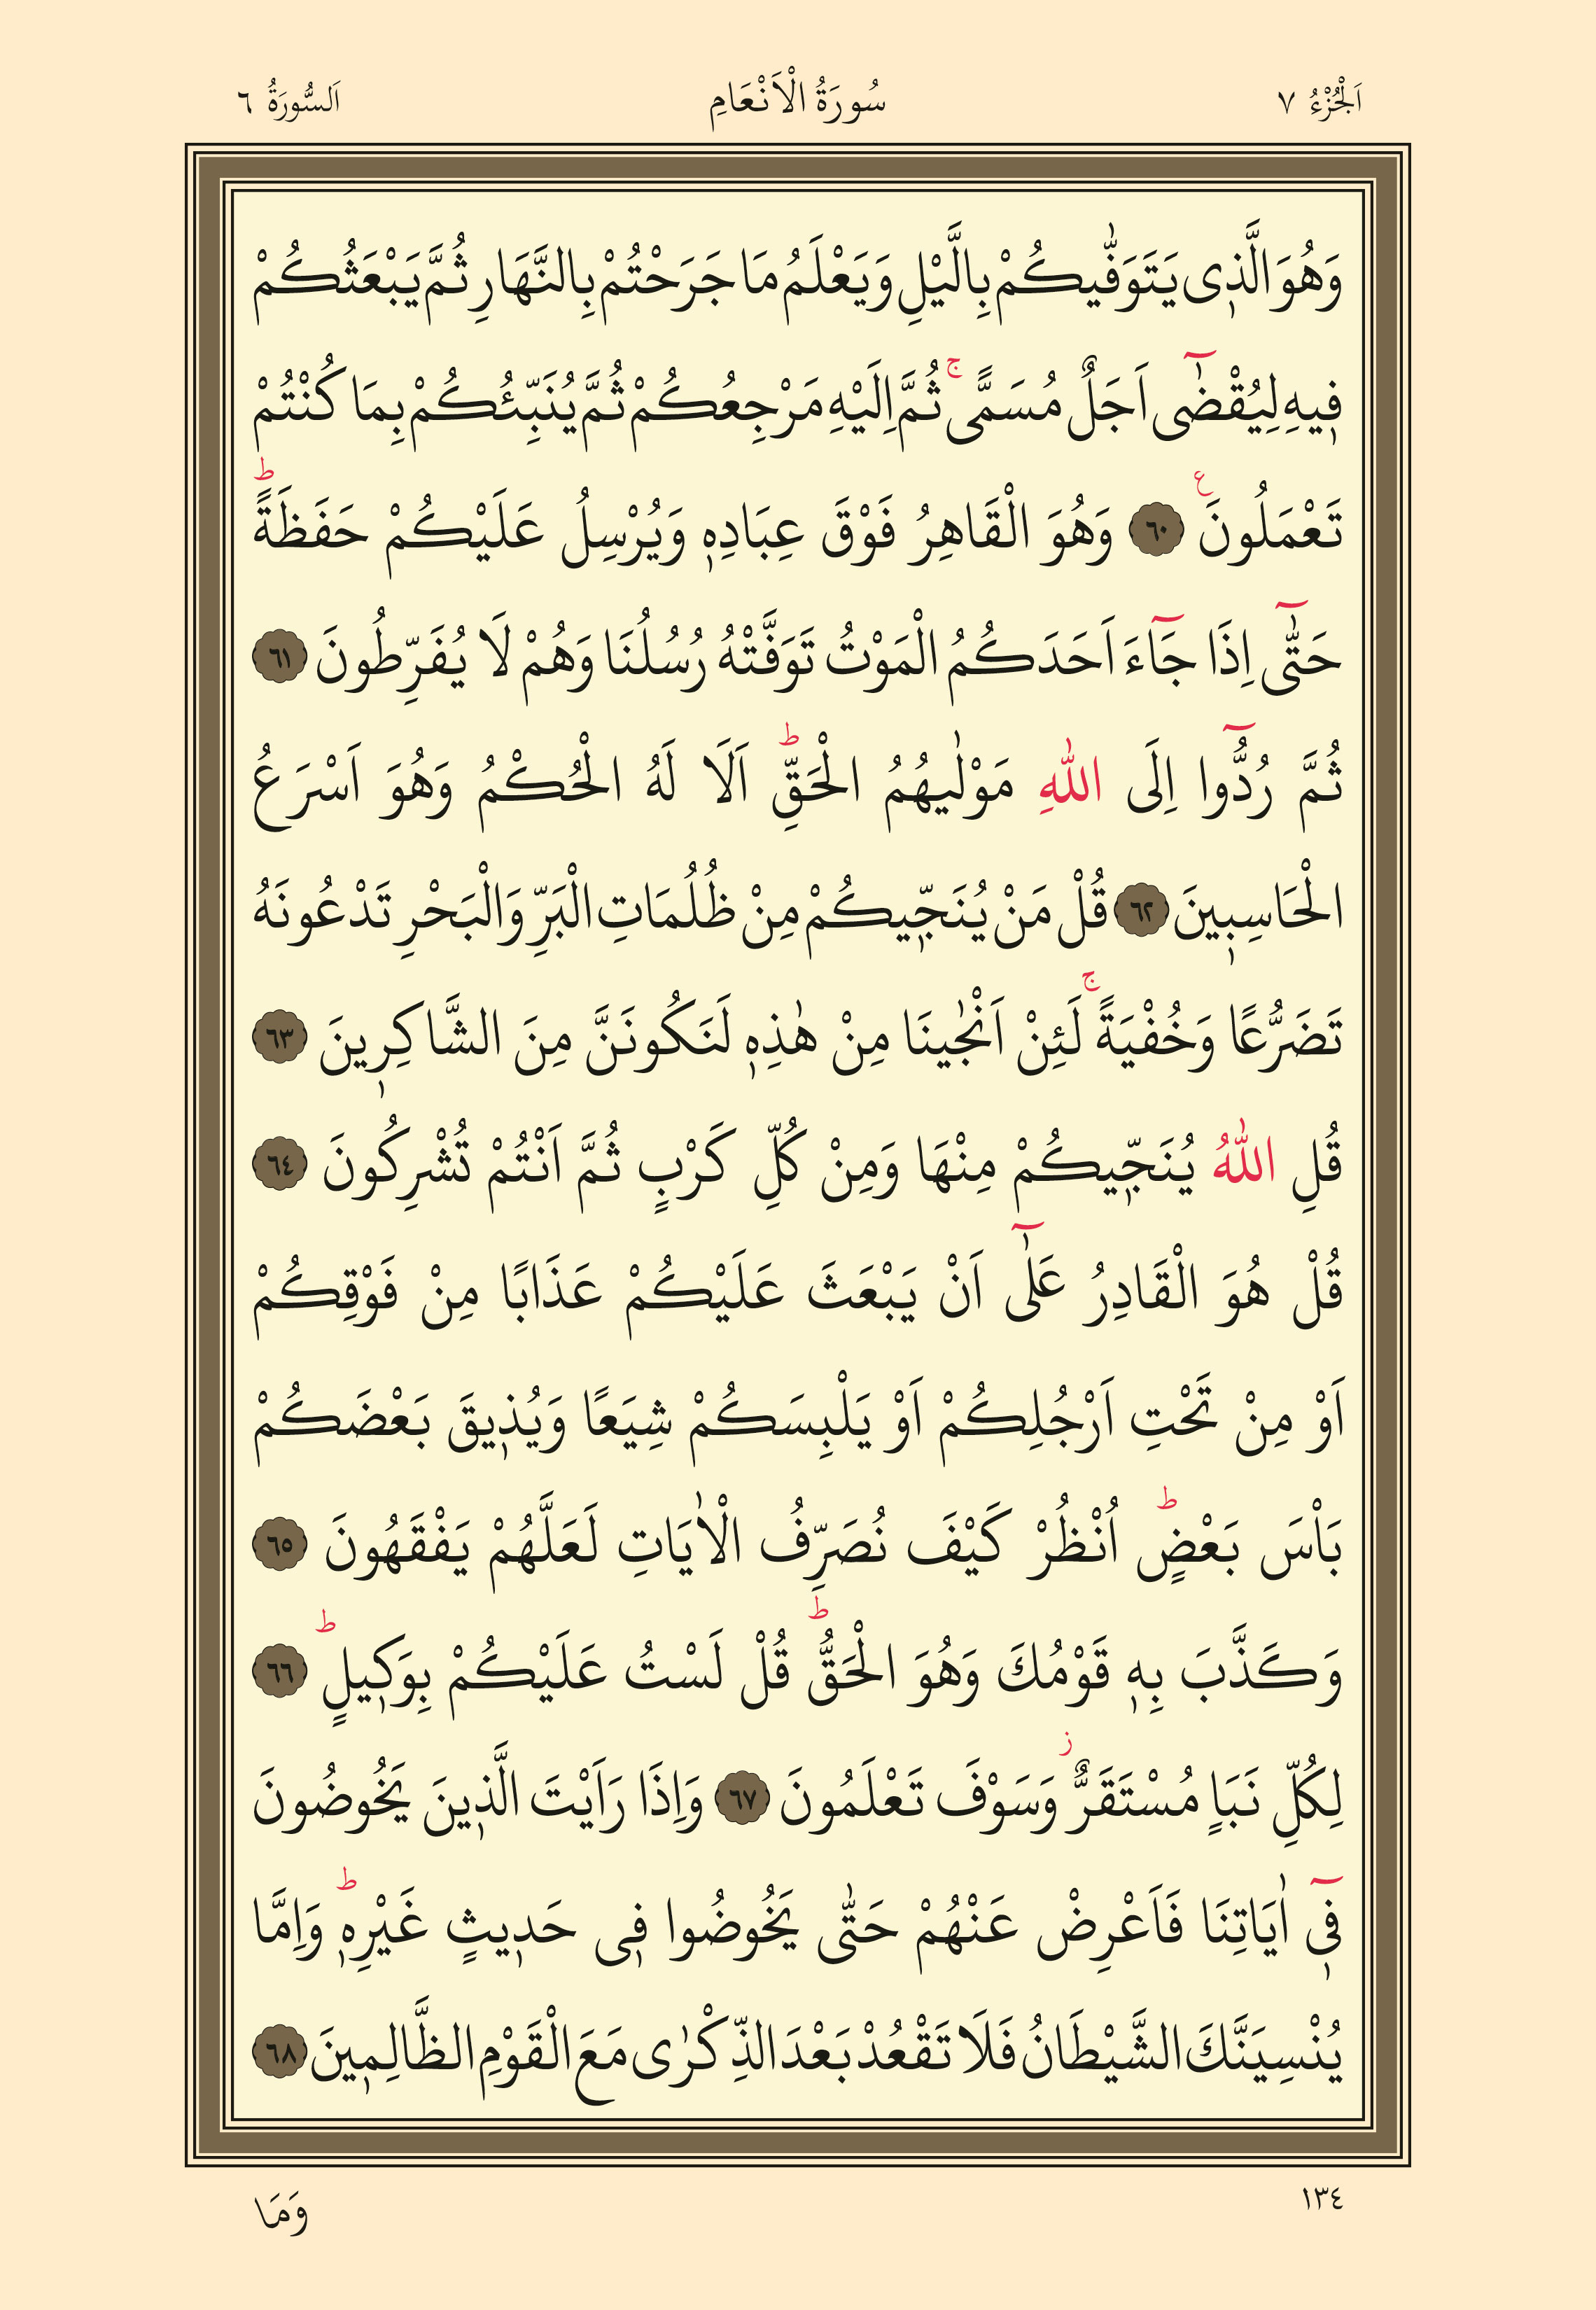 اَلْجُزْءُ ٧
سُورَةُ الْاَنْعَامِ
اَلسُّورَةُ ٦
وَهُوَ الَّذ۪ى يَتَوَفّٰيكُمْ بِالَّيْلِ وَيَعْلَمُ مَا جَرَحْتُمْ بِالنَّهَارِ ثُمَّ يَبْعَثُكُمْ
ف۪يهِ لِيُقْضٰٓى اَجَلٌ مُسَمًّىۚ ثُمَّ اِلَيْهِ مَرْجِعُكُمْ ثُمَّ يُنَبِّئُكُمْ بِمَا كُنْتُمْ
تَعْمَلُونَ ع ٦٠ وَهُوَ الْقَاهِرُ فَوْقَ عِبَادِه۪ وَيُرْسِلُ عَلَيْكُمْ حَفَظَةًؕ
حَتّٰٓى اِذَا جَٓاءَ اَحَدَكُمُ الْمَوْتُ تَوَفَّتْهُ رُسُلُنَا وَهُمْ لَا يُفَرِّطُونَ ٦١
ثُمَّ رُدُّٓوا اِلَى اللّٰهِ مَوْلٰيهُمُ الْحَقِّؕ اَلَا لَهُ الْحُكْمُ وَهُوَ اَسْرَعُ
الْحَاسِب۪ينَ ٦٢ قُلْ مَنْ يُنَجّ۪يكُمْ مِنْ ظُلُمَاتِ الْبَرِّ وَالْبَحْرِ تَدْعُونَهُ
تَضَرُّعًا وَخُفْيَةًۚ لَئِنْ اَنْجٰينَا مِنْ هٰذِه۪ لَنَكُونَنَّ مِنَ الشَّاكِر۪ينَ ٦٣
قُلِ اللّٰهُ يُنَجّ۪يكُمْ مِنْهَا وَمِنْ كُلِّ كَرْبٍ ثُمَّ اَنْتُمْ تُشْرِكُونَ ٦٤
قُلْ هُوَ الْقَادِرُ عَلٰٓى اَنْ يَبْعَثَ عَلَيْكُمْ عَذَابًا مِنْ فَوْقِكُمْ
اَوْ مِنْ تَحْتِ اَرْجُلِكُمْ اَوْ يَلْبِسَكُمْ شِيَعًا وَيُذ۪يقَ بَعْضَكُمْ
بَاْسَ بَعْضٍؕ اُنْظُرْ كَيْفَ نُصَرِّفُ الْاٰيَاتِ لَعَلَّهُمْ يَفْقَهُونَ ٦٥
وَكَذَّبَ بِه۪ قَوْمُكَ وَهُوَ الْحَقُّؕ قُلْ لَسْتُ عَلَيْكُمْ بِوَك۪يلٍؕ ٦٦
لِكُلِّ نَبَاٍ مُسْتَقَرٌّ ز وَسَوْفَ تَعْلَمُونَ ٦٧ وَاِذَا رَاَيْتَ الَّذ۪ينَ يَخُوضُونَ
ف۪ٓى اٰيَاتِنَا فَاَعْرِضْ عَنْهُمْ حَتّٰى يَخُوضُوا ف۪ى حَد۪يثٍ غَيْرِه۪ؕ وَاِمَّا
يُنْسِيَنَّكَ الشَّيْطَانُ فَلَا تَقْعُدْ بَعْدَ الذِّكْرٰى مَعَ الْقَوْمِ الظَّالِم۪ينَ ٦٨
١٣٤
وَمَا